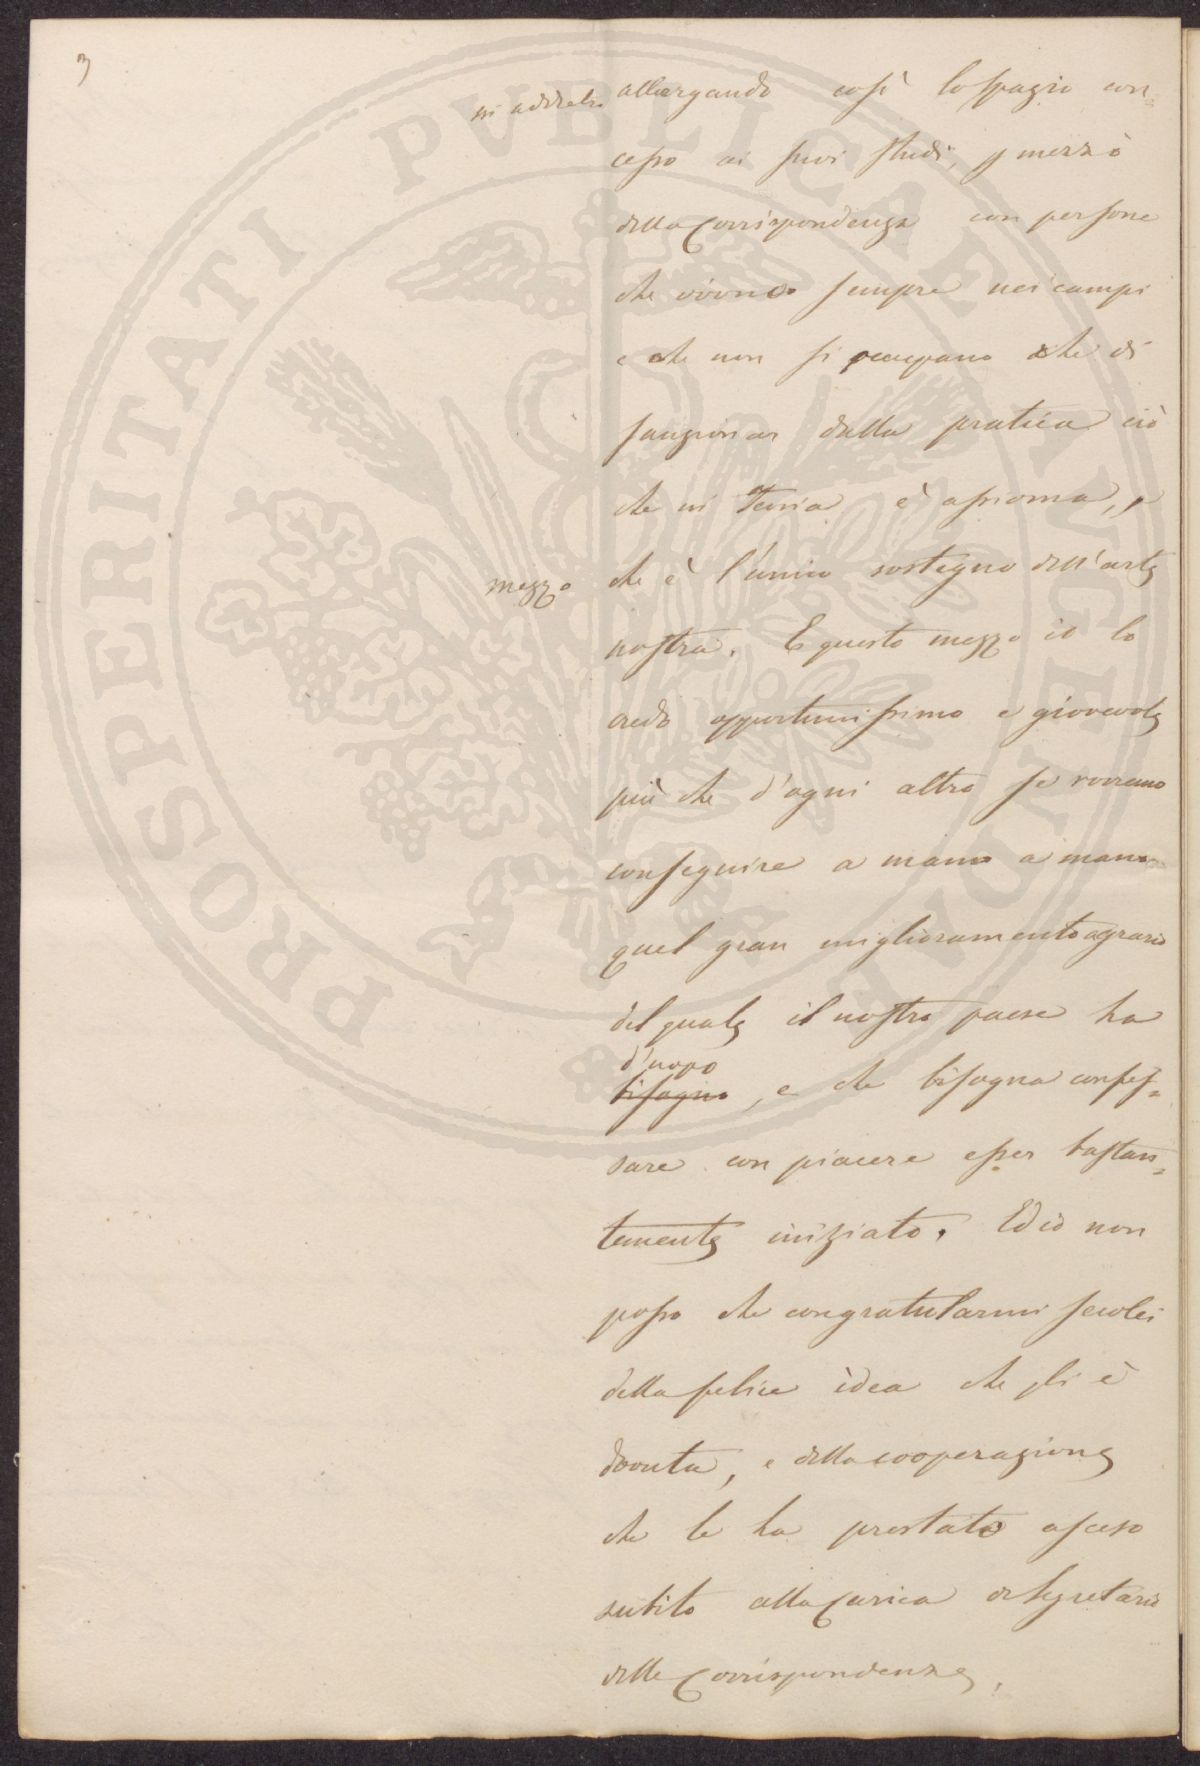 3
allargando così lo spazio con=
cesso ai suoi studi, p mezzo
della Corrispondenza con persone
che vivono sempre nei campi
e che non si occupano che di
sanzionar dalla pratica ciò
che in Teoria è assioma, e
mezzo
che è l'unico sostegno dell'arte
nostra. E questo mezzo io lo
credo opportunissimo e giovevole
più che d'ogni altro se vorremo
conseguire a mano a mano
quel gran miglioramento agrario
del quale il nostro paese ha
d'uopo
bisogno, e che bisogna confes=
sare con piacere esser bastan=
temente iniziato. Ed io non
posso che congratularmi secolei
della felice idea che gli è
dovuta, e della cooperazione
che le ha prestato asceso
subito alla Carica di Segretario
delle Corrispondenze,
PROSPERITATI PUBLICAE AUGENDAE